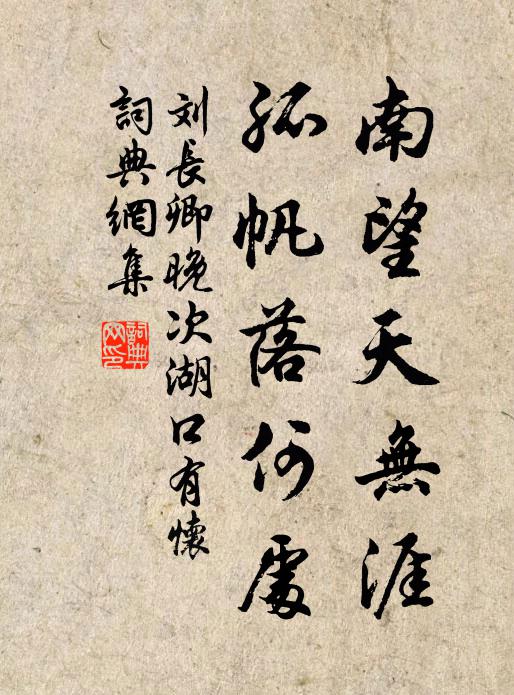 南望天無涯
孤帆落何處
刘長卿晚次湖口有懷
詞典網集
詞典
网印